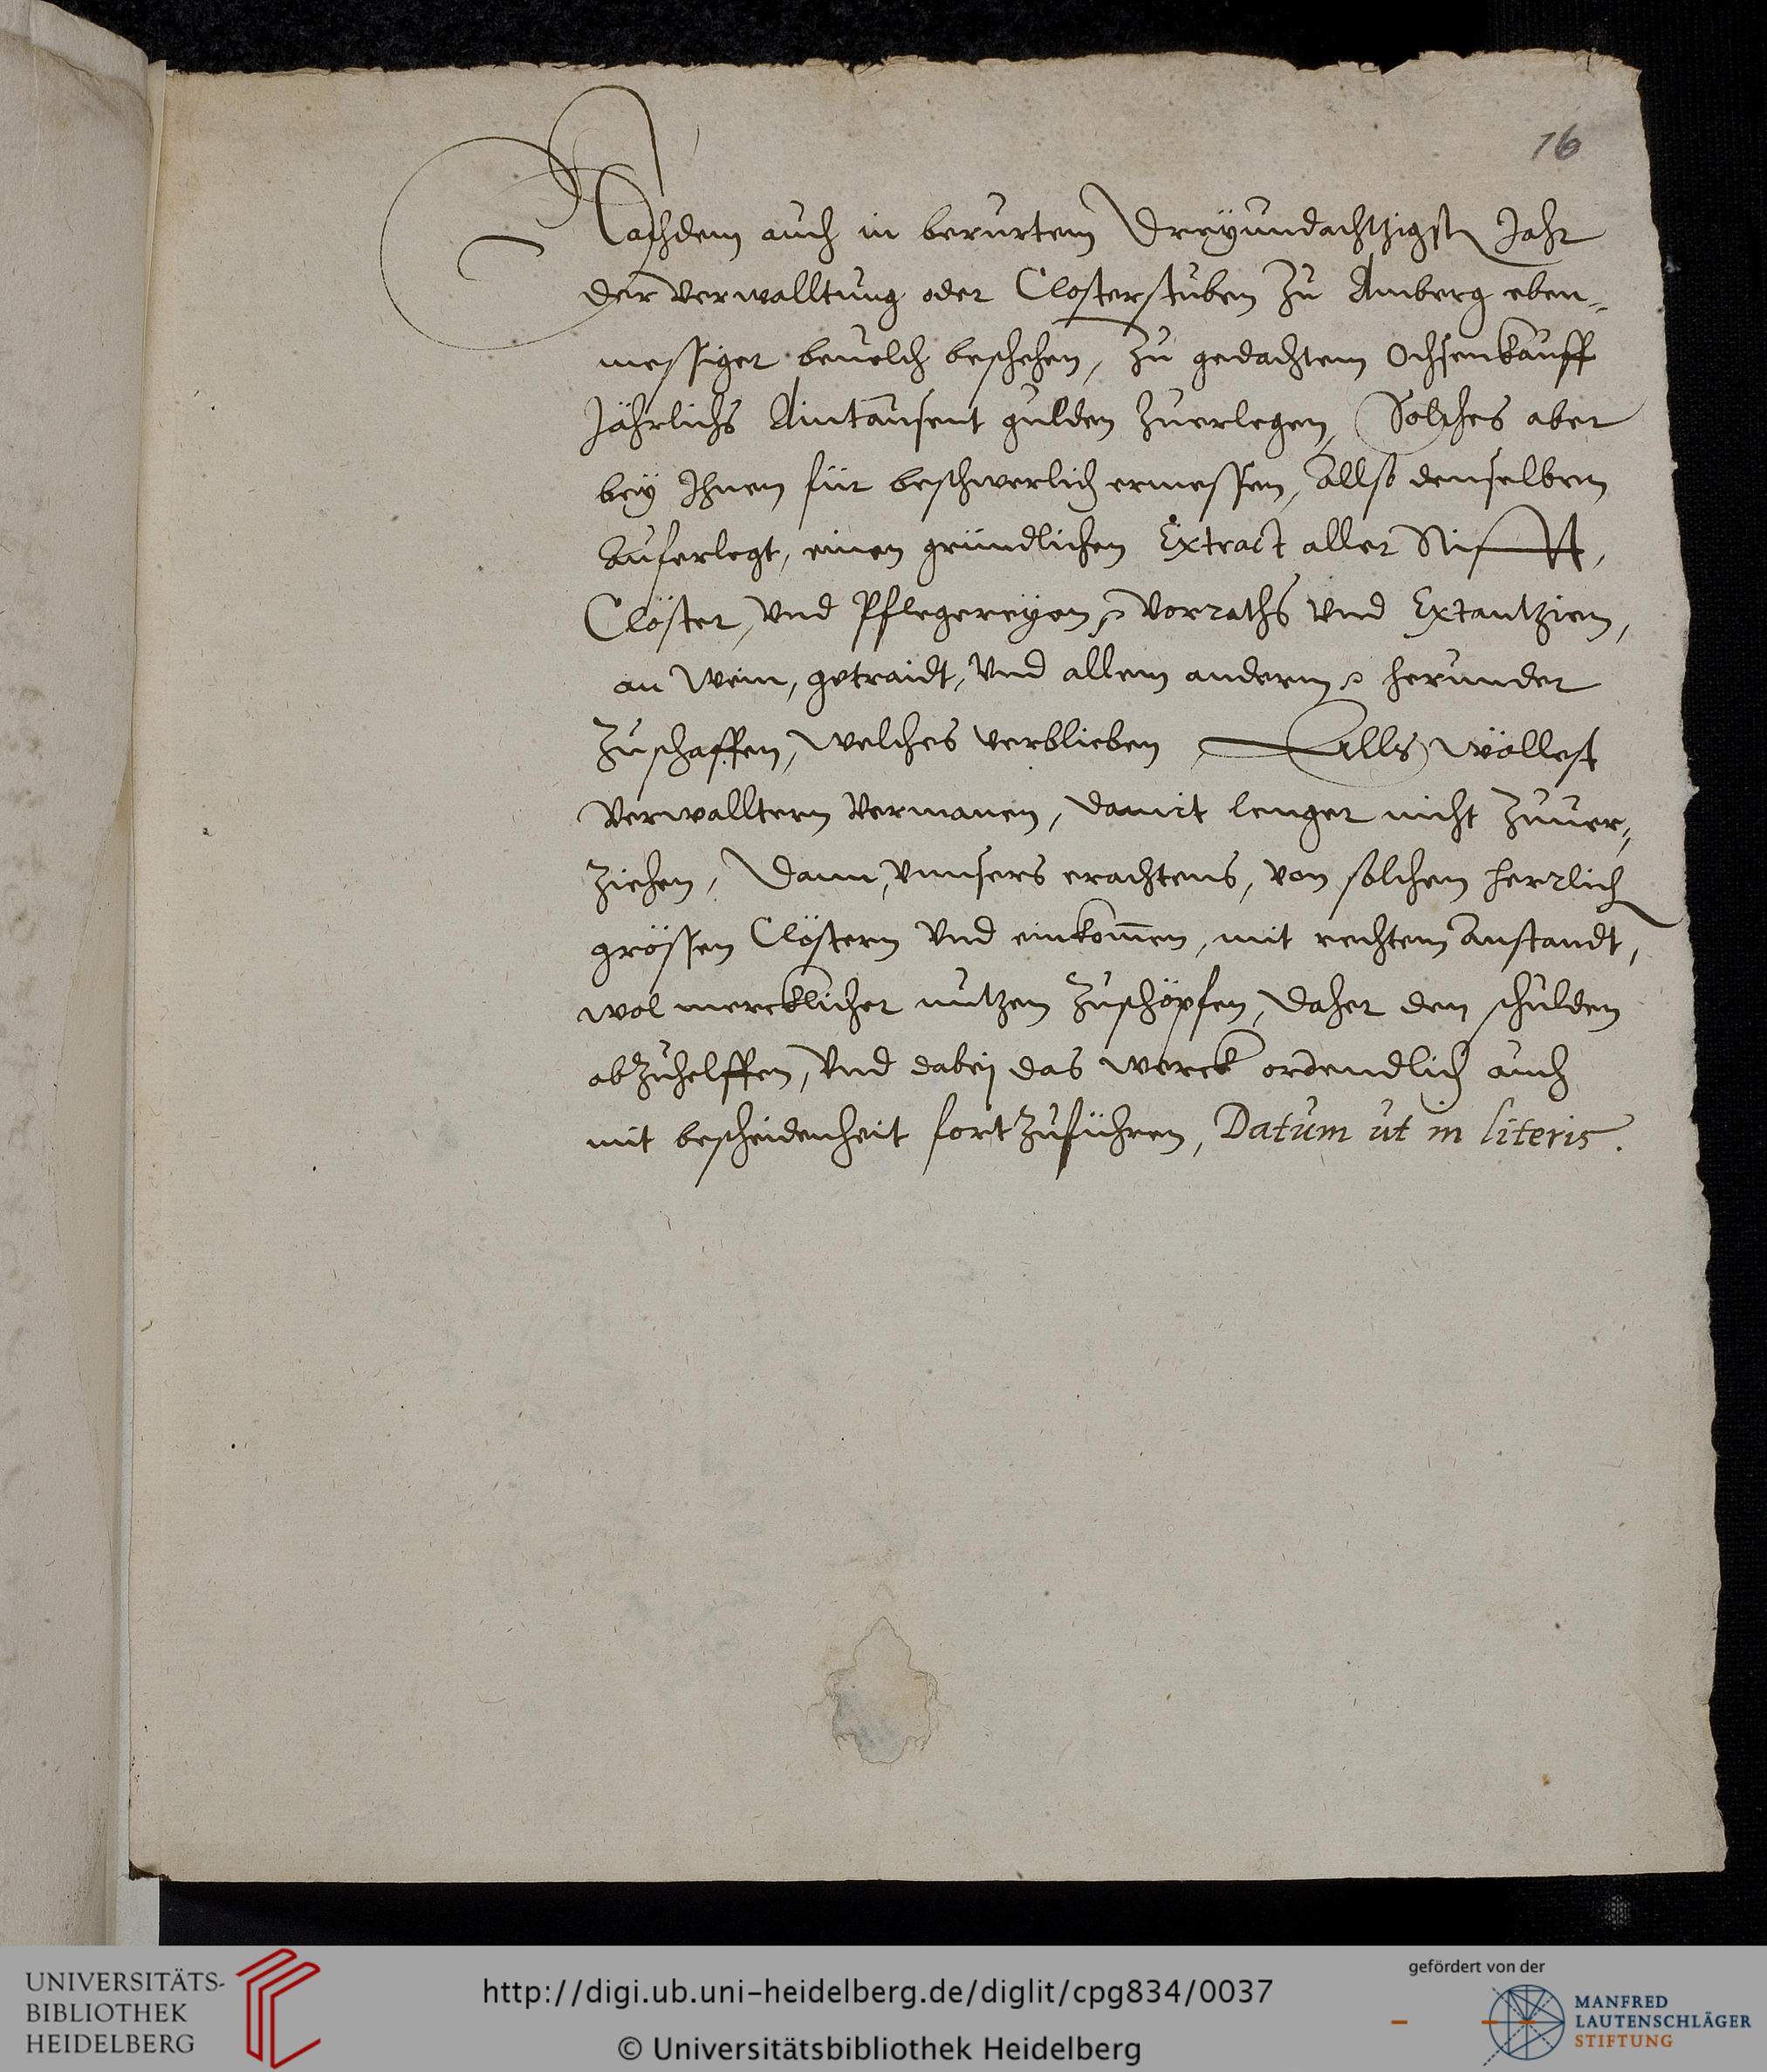 16
Nachdem auch in berurtem Dreyundachtzigst Jahr
der verwalltung oder Closterstuben zu Amberg eben„
messiger beuelch beschehen, zu gedachtem Ochsenkauff
Jährlichs Aintausent gulden zuerlegen, Solches aber
bey Ihnen für beschwerlich ermessen, Allso denselben
Auferlegt, einen gründlichen Extract aller Stifft,
Clöster, vnd Pflegereyen, vorraths vnd Extantzien,
an wein, getraidt, vnd allem andern herunder
zuschaffen, welches verblieben Alls wöllest
Verwalltern Vermanen, damit lenger nicht zuuer„
ziehen, Dann, vnnsers erachtens, von solchen herrlich
grössen Clöstern vnd einkom̄en, mit rechtem Anstandt,
wol mercklicher nutzen zuschöpfen, daher den schulden
abzuhelffen, vnd dabej das werck ordendlich auch
mit bescheidenheit fortzuführen, Datum ut in literis.
UNIVERSITÄTS-
BIBLIOTHEK
HEIDELBERG
http://digi.ub.uni-heidelberg.de/diglit/cpg834/0037
© Universitätsbibliothek Heidelberg
gefördert von der
MANFRED
LAUTENSCHLÄGER
STIFTUNG